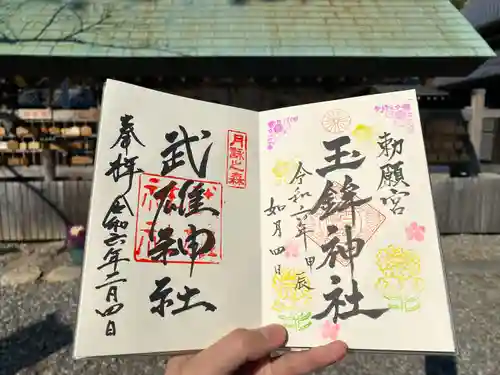 勅願宮
玉鉾神社
令和六年甲辰
如月四日
奉拝
月詠之森
武雄神社
令和六年二月四日